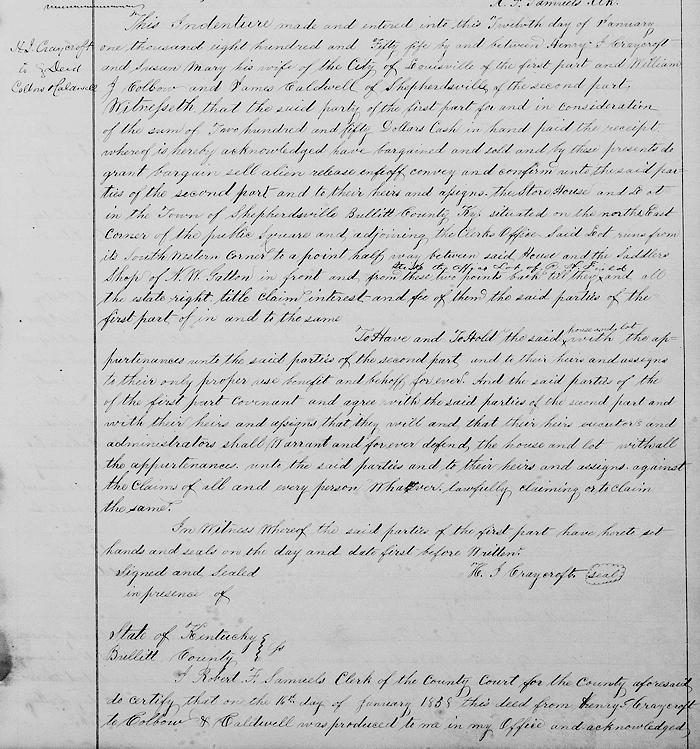 R. F. Samuels Clk.
This Indenture made and entered into this Twelvth day of January
H. J. Craycroft
one thousand eight hundred and Fifty five by and between Henry J Craycroft
to } Deed
and Susan Mary his wife of the City of Louisville of the first part and William
Colbow & Caldwell
J Colbow and James Caldwell of Shepherdsville of the second part,
Witnesseth that the said party of the first part for and in consideration
of the sum of Two hundred and fifty Dollars Cash in hand paid the receipt
whereof is hereby acknowledged have bargained and sold and by these presents do
grant bargain sell alien release enfeoff convey and confirm unto the said par-
ties of the second part and to their heirs and assigns. the Store House and Lot
in the Town of Shepherdsville Bullitt County Ky. situated on the north East
Corner of the public Square and adjoining the Clerks Office Said Lot runs from
its South Western Corner to a point half way between said House and the Saddlers
Shop of N. W. Gatton in front and from these two points back till they and all
the estate right title claim interest and fee of them the said parties of the
first part of in and to the same
To Have and To Hold the said house and lot with the ap-
purtenances unto the said parties of the second part and to their heirs and assigns
to their only proper use benefit and behoff for ever. And the said parties of the
of the first part Covenant and agree with the said parties of the second part and
with their heirs and assigns that they will and that their heirs executors and
administrators shall Warrant and forever defend the house and lot with all
the appurtenances. unto the said parties and to their heirs and assigns. against
the Claims of all and every person Whatever. lawfully claiming or to claim
the same.
In Witness Whereof the said parties of the first part have hereto set
hands and seals on the day and date first before Written.
Signed and Sealed H. J Craycroft seal
in presence of
State of Kentucky }
Bullitt County } ss
I Robert F. Samuels Clerk of the County Court for the County aforesaid
do certify that on the day of January 1855 this deed from Henry J Craycroft
to Colbow & Caldwell was produced to me in my Office and acknowledged